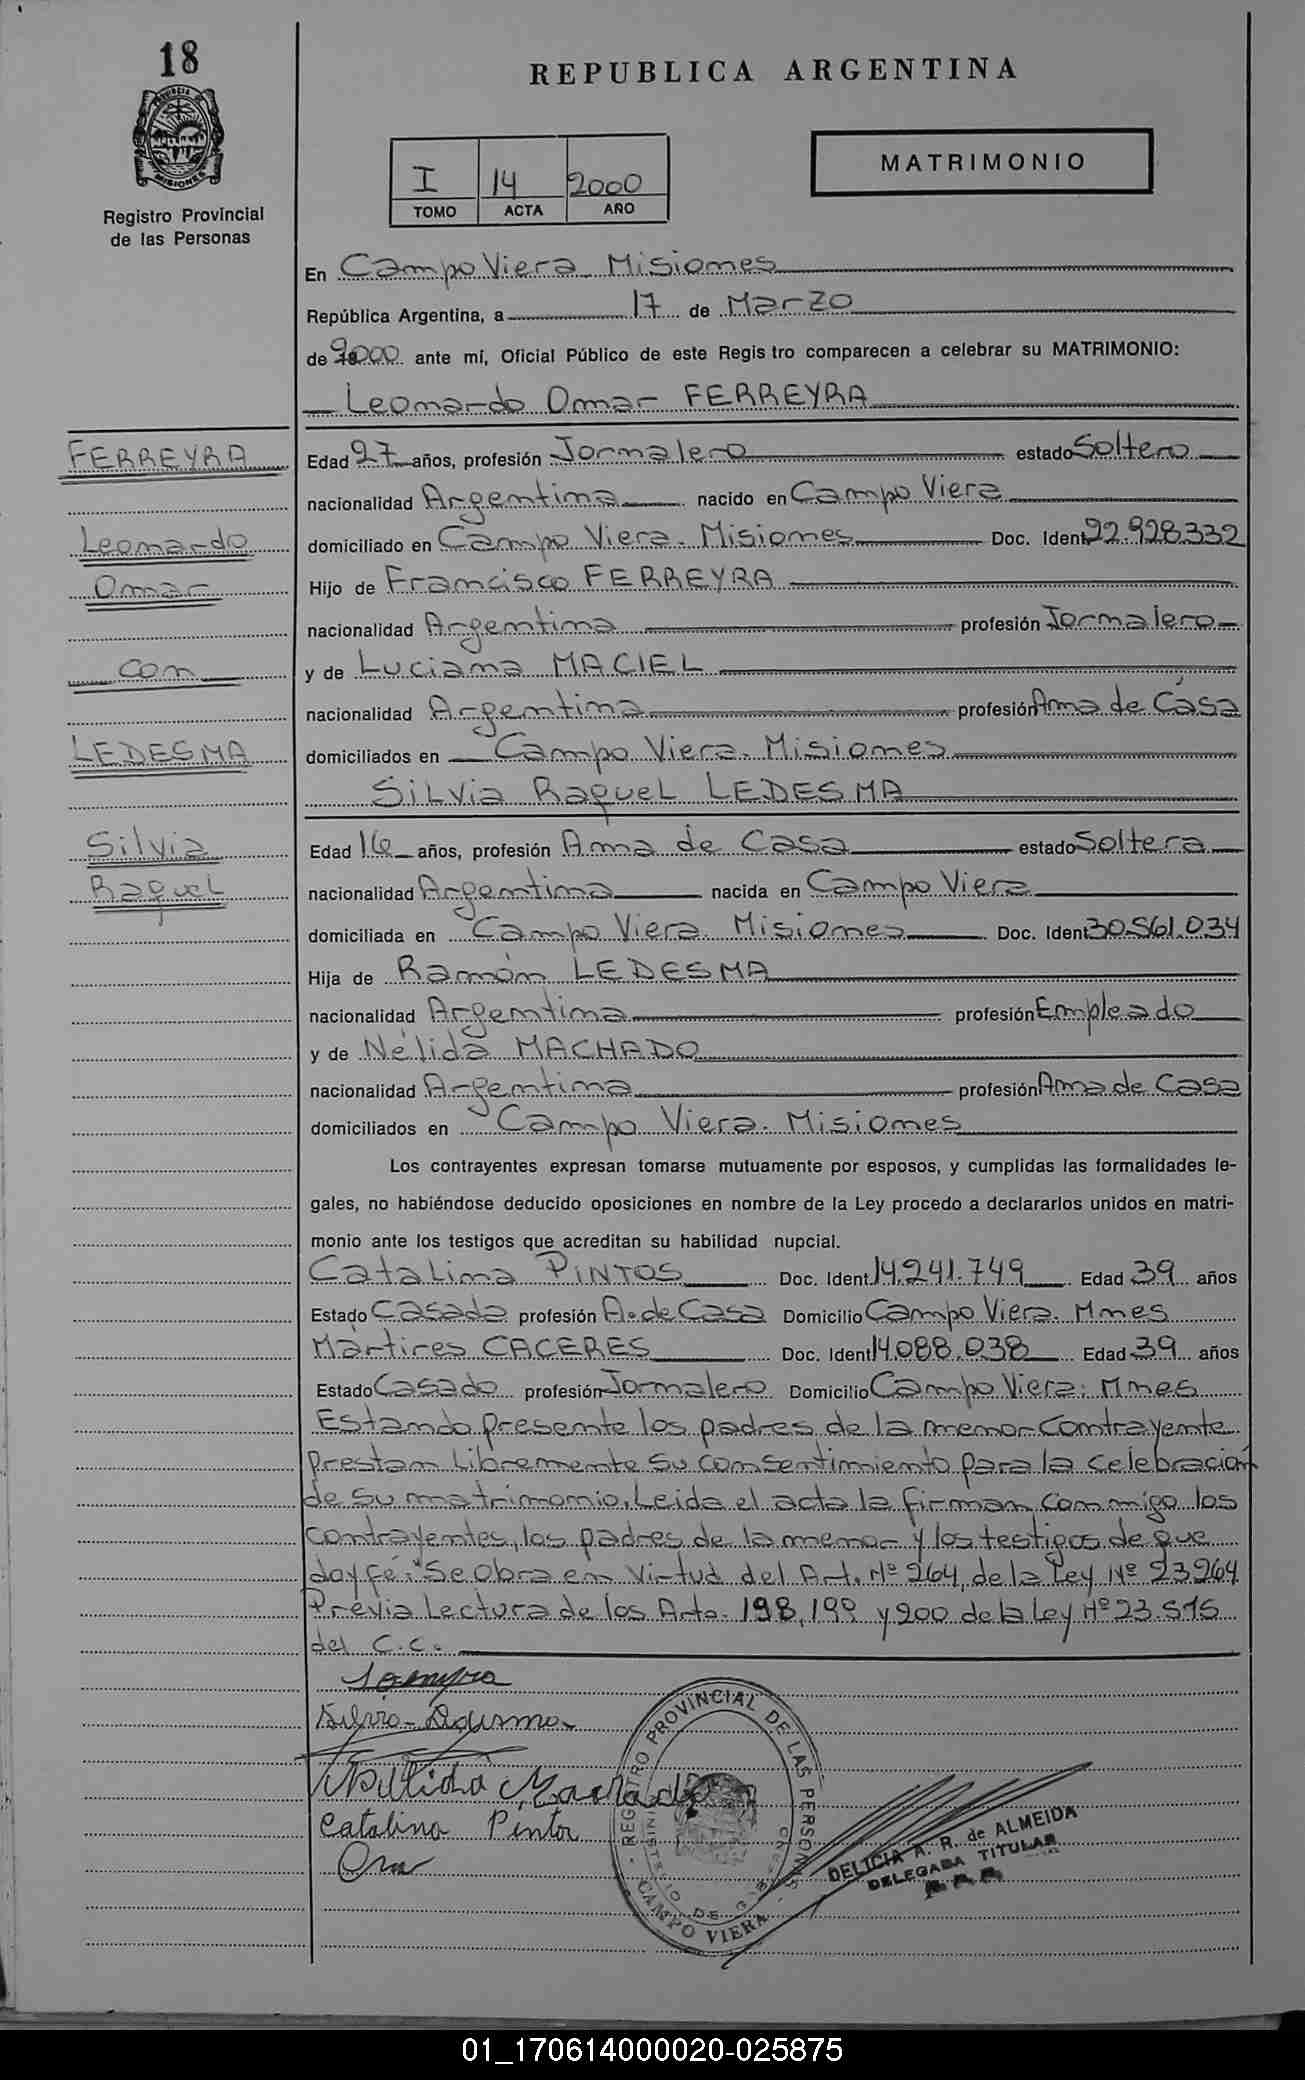 18
REPUBLICA ARGENTINA
Registro Provincial
de las Personas
I 14 2000
TOMO ACTA AÑO
MATRIMONIO
En Campo Viera Misiones
República Argentina, a 17 de Marzo
de 2000 ante mí, Oficial Público de este Regis tro comparecen a celebrar su MATRIMONIO:
Leonardo Omar FERREYRA
FERREYRA
Leonardo
Omar
con
LEDESMA
Silvia
Raquel
Edad 27 años, profesión Jornalero estado Soltero
nacionalidad Argentina nacido en Campo Viera
domiciliado en Campo Viera. Misiones Doc. Ident 22.928.332
Hijo de Francisco FERREYRA
nacionalidad Argentina profesión Jornalero
y de Luciana MACIEL
nacionalidad Argentina profesión Ama de Casa
domiciliados en Campo Viera. Misiones
Silvia Raquel LEDESMA
Edad 16 años, profesión Ama de Casa estado Soltera
nacionalidad Argentina nacida en Campo Viera
domiciliada en Campo Viera. Misiones Doc. Ident 30.561.034
Hija de Ramón LEDESMA
nacionalidad Argentina profesión Empleado
y de Nélida MACHADO
nacionalidad Argentina profesión Ama de Casa
domiciliados en Campo Viera. Misiones
Los contrayentes expresan tomarse mutuamente por esposos, y cumplidas las formalidades le-
gales, no habiéndose deducido oposiciones en nombre de la Ley procedo a declararlos unidos en matri-
monio ante los testigos que acreditan su habilidad nupcial.
Catalina PINTOS Doc. Ident. 14.241.749 Edad 39 años
Estado Casada profesión A. de Casa Domicilio Campo Viera. Mnes
Mártires CACERES Doc. Ident 14.088.038 Edad 39 años
Estado Casado profesión Jornalero Domicilio Campo Viera. Mnes
Estando presente los padres de la menor Contrayente
prestan Libremente su consentimiento para la celebración
de su matrimonio. Leida el acta la firman conmigo los
contrayentes, los padres de la menor y los testigos de que
doy fé: Se Obra en Virtud del Art. Nº 264, de la Ley Nº 23264
Previa Lectura de los Arts. 198, 199 y 200 de la Ley Nº 23.515
del C.C.
Nelida Machado
Catalina Pintos
REGISTRO PROVINCIAL DE LAS PERSONAS
MINISTERIO DE GOBIERNO
CAMPO VIERA
DELICIA A. R. de ALMEIDA
DELEGADA TITULAR
01_170614000020-025875